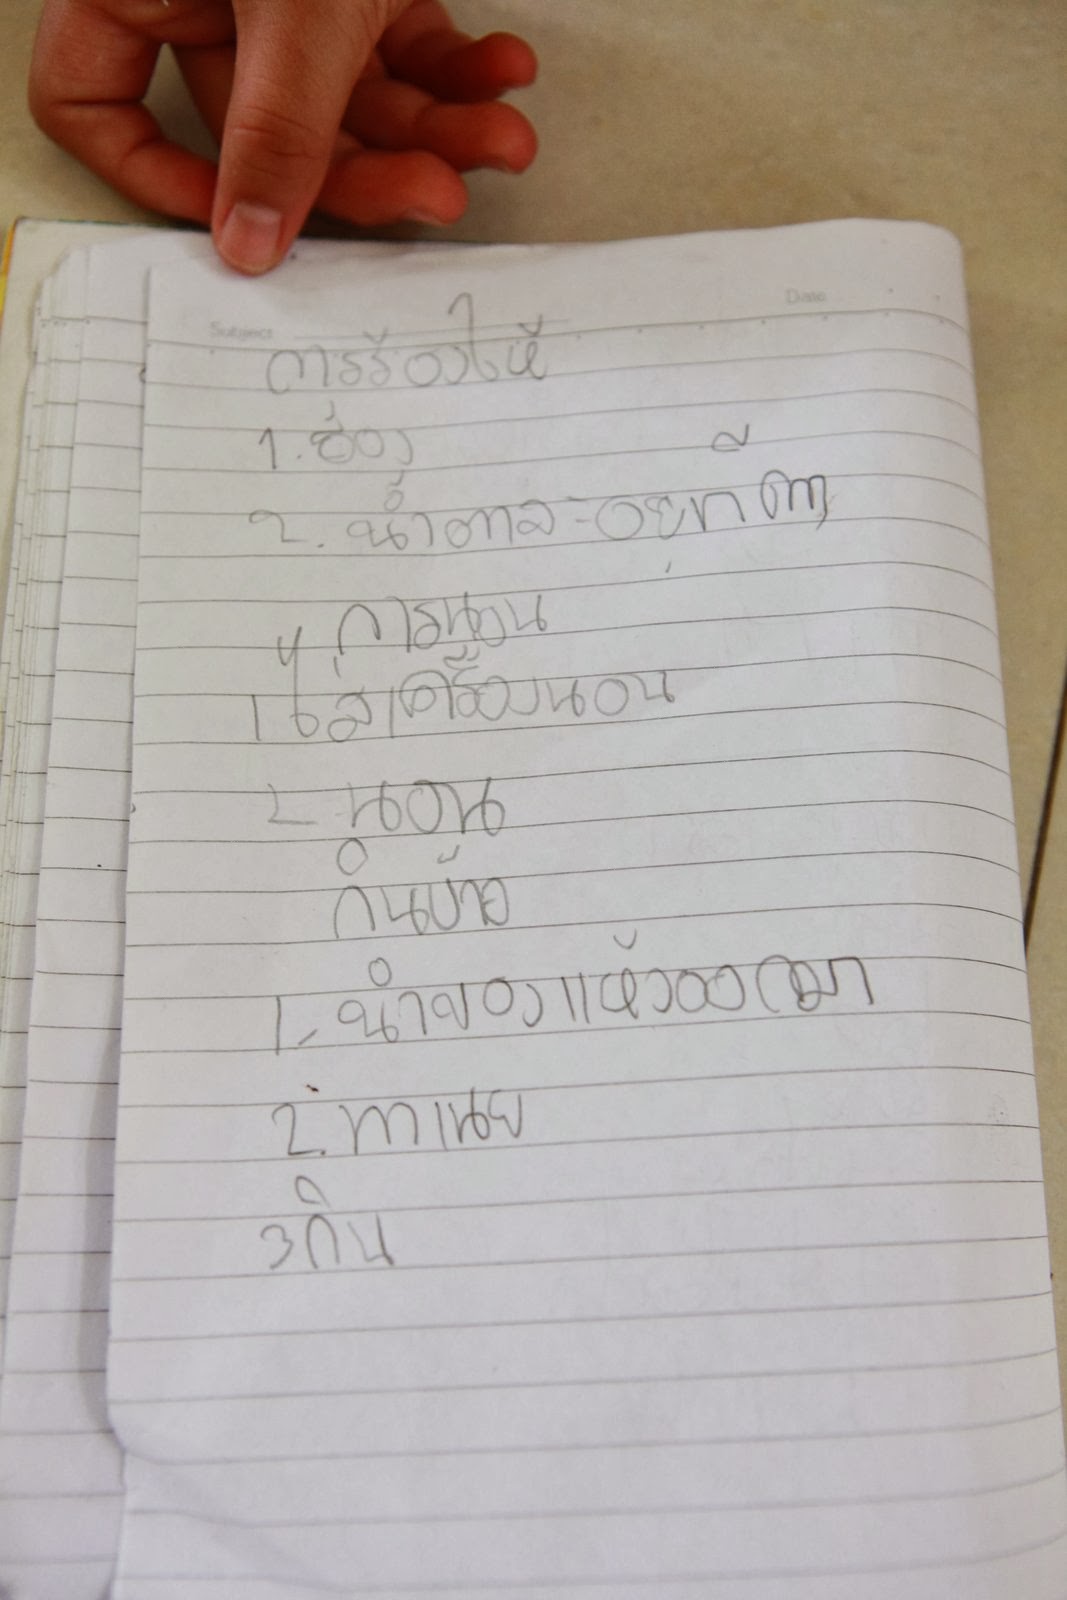 Subject Date
การร้องไห้
1. ช่อง
2. น้ำตาจะอยู่ที่ตา
การนอน
1 ใส่เครื่องนอน
2 นอน
กินข้าว
1. นำของแห้วออกมา
2. ทาเนย
3 กิน